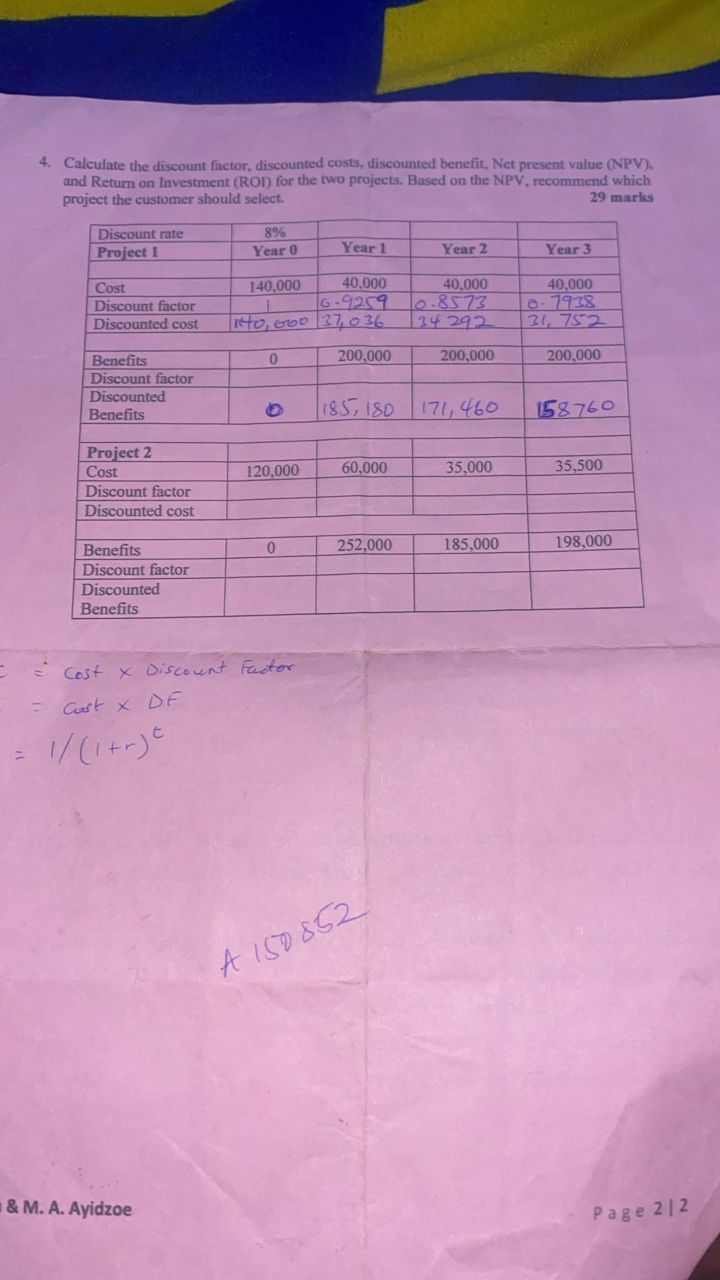 4. Calculate the discount factor, discounted costs, discounted benefit, Net present value (NPV),
and Return on Investment (ROI) for the two projects. Based on the NPV, recommend which
project the customer should select. 29 marks
Discount rate 8%
Project 1 Year 0 Year 1 Year 2 Year 3
Cost 140,000 40,000 40,000 40,000
Discount factor 1 0.9259 0.8573 0.7938
Discounted cost 140,000 37,036 34292 31,752
Benefits 0 200,000 200,000 200,000
Discount factor
Discounted
Benefits 0 185,180 171,460 158760
Project 2
Cost 120,000 60,000 35,000 35,500
Discount factor
Discounted cost
Benefits 0 252,000 185,000 198,000
Discount factor
Discounted
Benefits
= Cost x Discount Factor
= Cost x DF
= 1/(1+r)^t
A 150852
& M. A. Ayidzoe
Page 2|2